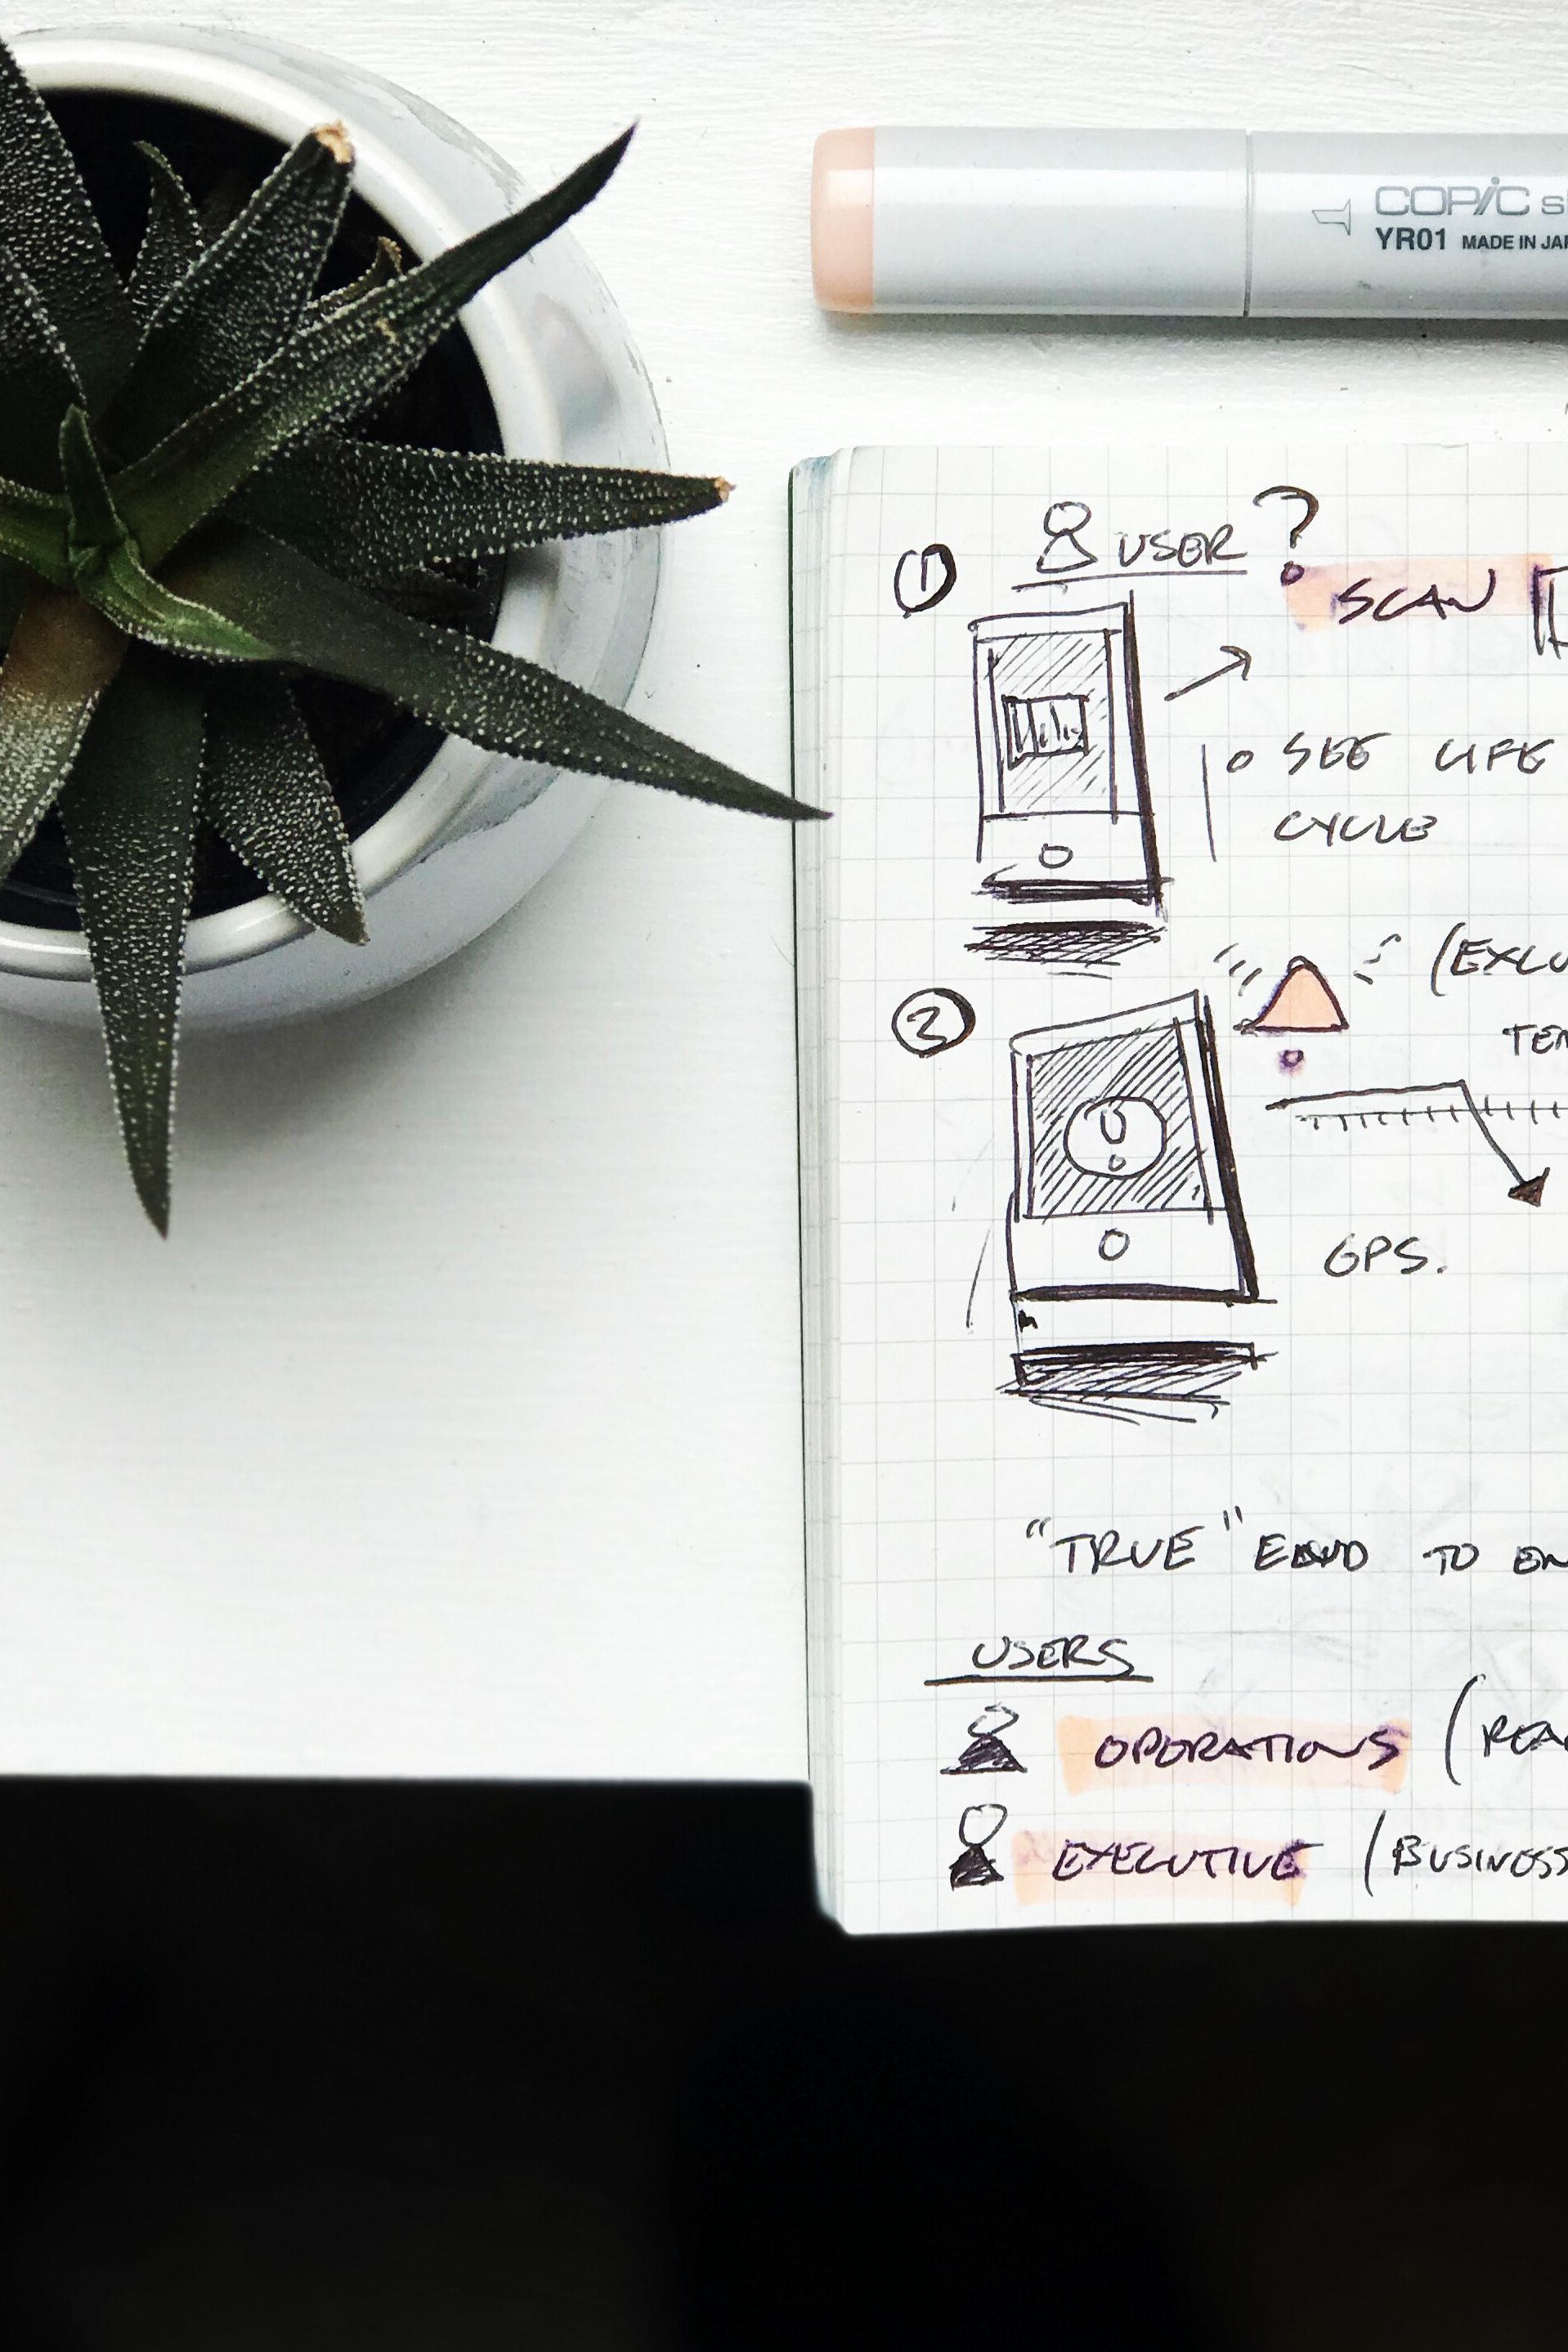 COPIC
YR01 MADE IN JA
1 USER ?
SCAN
SEE LIFE
CYCLE
2
(EXCU
TEM
!
GPS.
"TRUE" END TO EN
USERS
OPERATIONS (REA
EXECUTIVE (BUSINESS